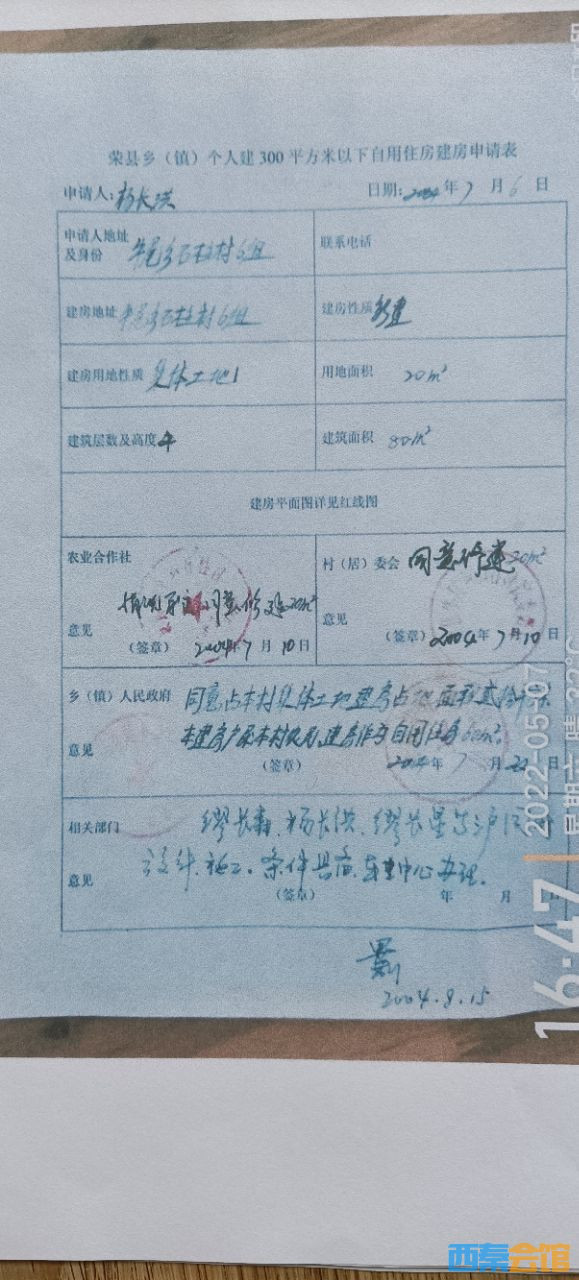 荣县乡（镇）个人建300平方米以下自用住房建房申请表
申请人：杨长洪 日期：2004年7月6日
申请人地址及身份 乡石柱村6组 联系电话
建房地址 乡石柱村6组 建房性质 新建
建房用地性质 集体土地 用地面积 20m²
建筑层数及高度 4 建筑面积 80m²
建房平面图详见红线图
农业合作社 村（居）委会 同意修建20m²
情况属实同意修建20m²
意见 意见
（签章） 2004年7月10日 （签章） 2004年7月10日
乡（镇）人民政府 同意占本村集体土地建房占地面积贰拾
意见 本建房户系本村村民，建房作为自用住房
（签章） 2004年7月22日
相关部门 缪长 、杨长洪、缪长
意见 设计、施工、条件具备， 中心办理。
（签章） 年 月 日
2004.8.15
16:47
2022-05-07
星期六 晴 22℃
西秦会馆